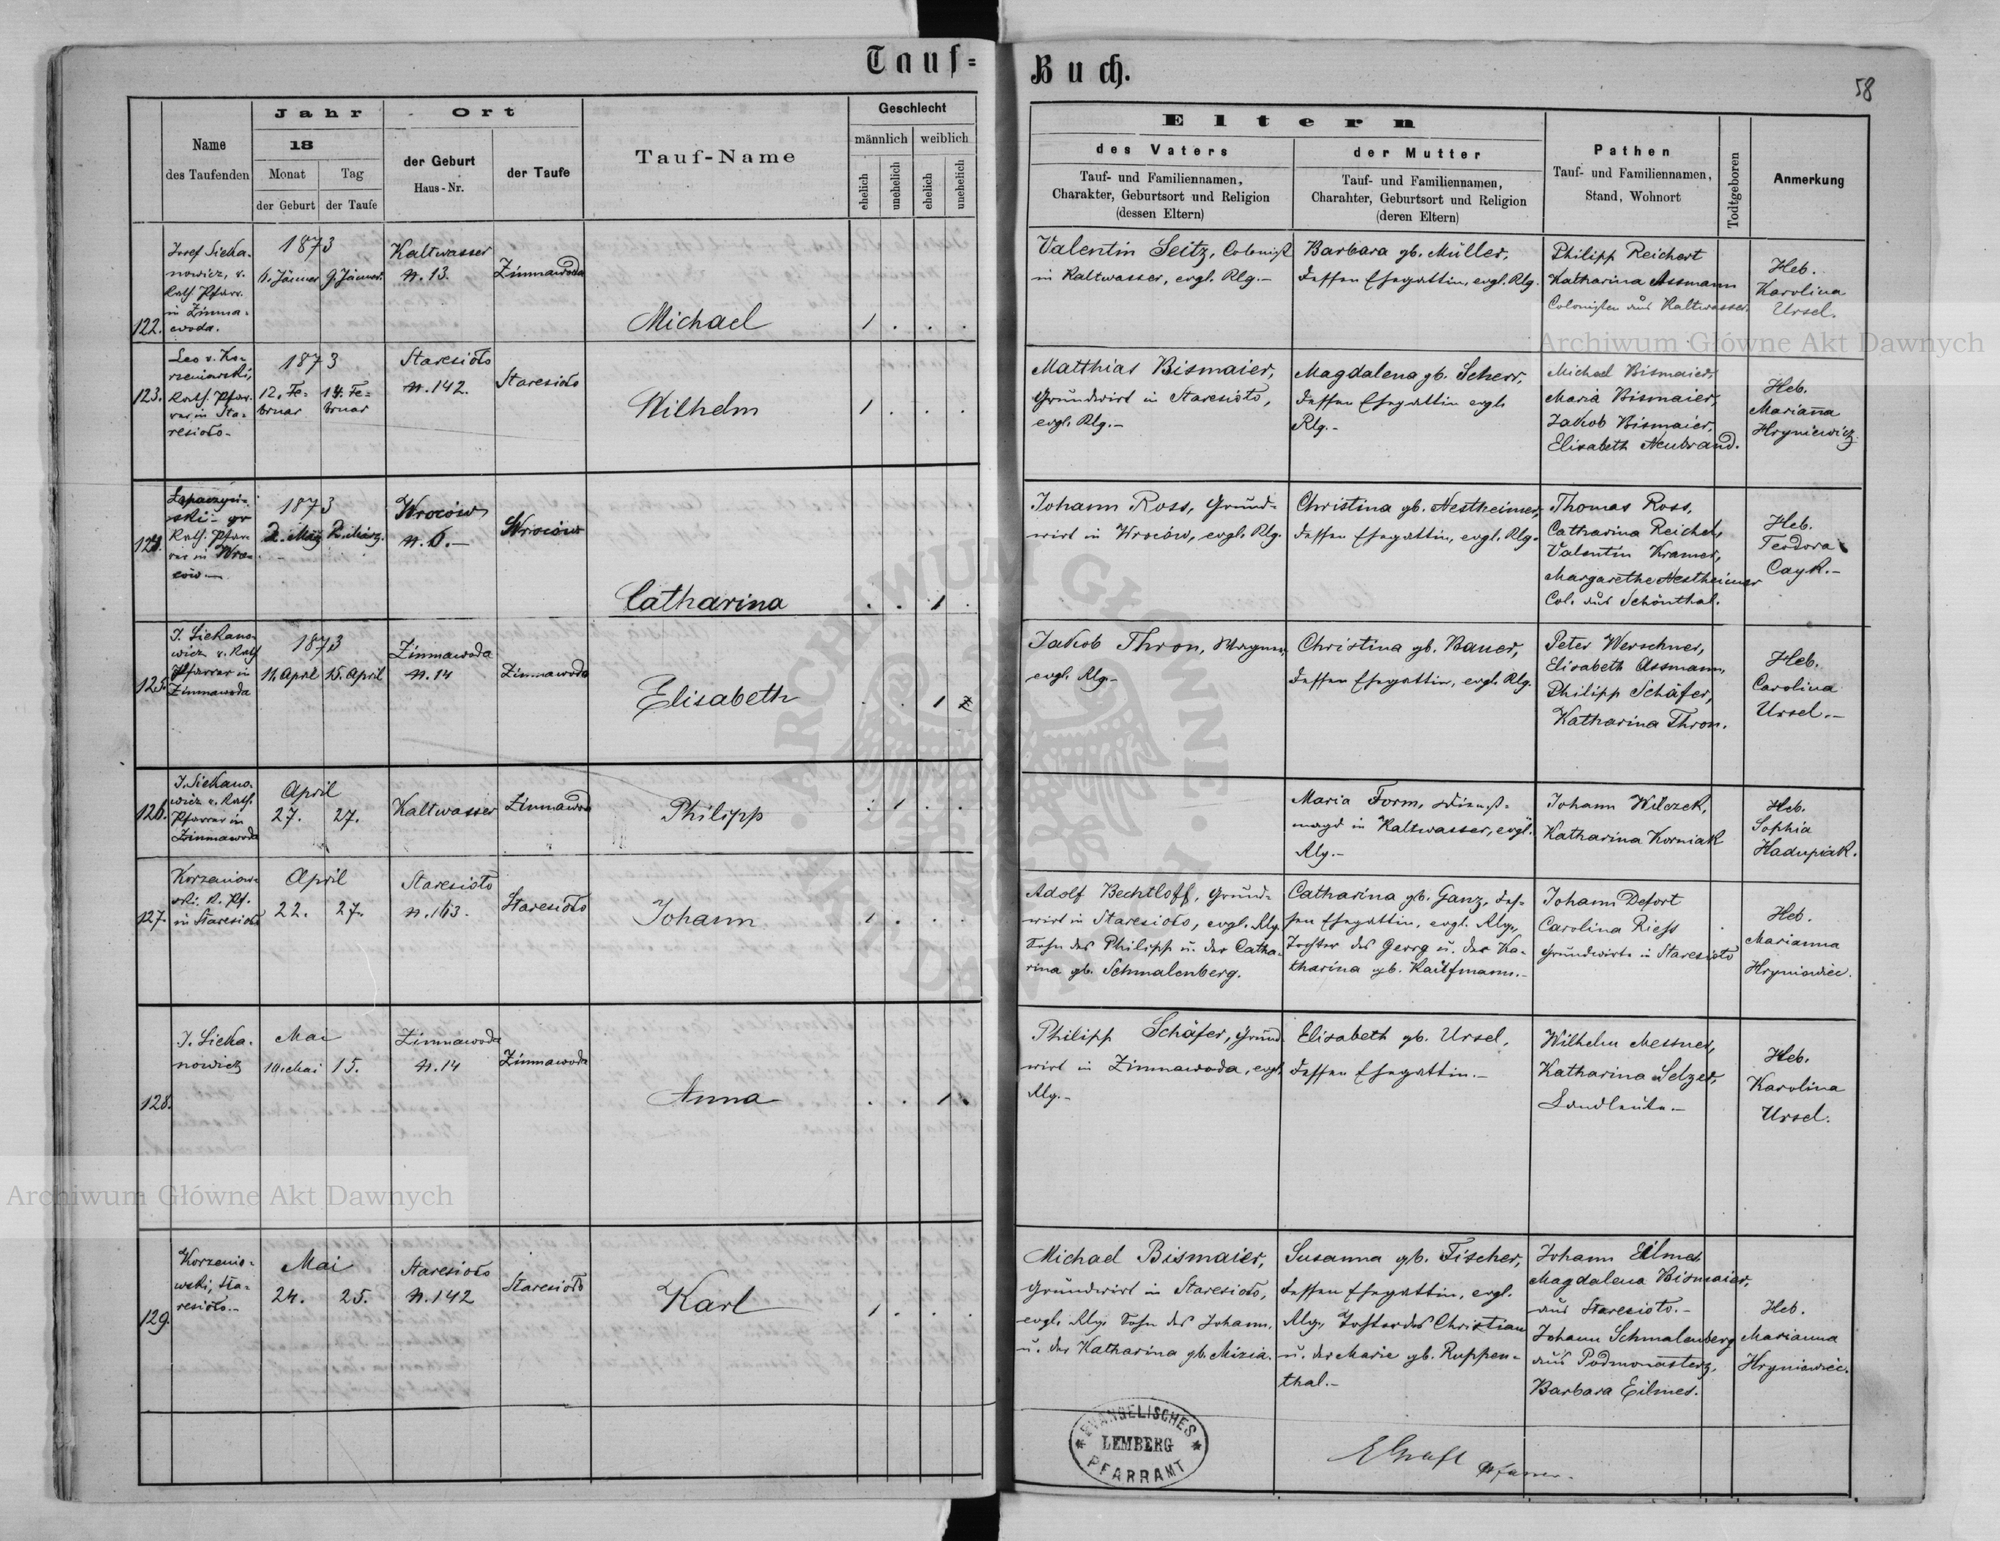 Tauf=
Buch.
58
Name
des Taufenden
Jahr
18
Monat
Tag
der Geburt
der Taufe
Ort
der Geburt
Haus-Nr.
der Taufe
Tauf-Name
Geschlecht
männlich
weiblich
ehelich
unehelich
ehelich
unehelich
Eltern
des Vaters
Tauf- und Familiennamen,
Charakter, Geburtsort und Religion
(dessen Eltern)
der Mutter
Tauf- und Familiennamen,
Charahter, Geburtsort und Religion
(deren Eltern)
Pathen
Tauf- und Familiennamen,
Stand, Wohnort
Todtgeboren
Anmerkung
122.
Josef Sieka-
nowicz, r.
Kath. Pfarr.
in Zimna-
woda.
1873
6. Jänner 9. Jänner.
Kaltwasser
N. 13.
Zimnawoda
Michael
1 . . .
Valentin Seitz, Colonist
in Kaltwasser, evgl. Rlg.-
Barbara gb. Müller,
dessen Ehegattin, evgl. Rlg.
Philipp Reichert
Katharina Assmann
Colonisten aus Kaltwasser.
Heb.
Karolina
Ursel.
123.
Leo v. Ko-
rzeniowski,
Kath. Pfar-
rer in Sta-
resioło-
1873
12. Fe-
bruar
14. Fe-
bruar
Staresioło
N. 142.
Staresioło
Wilhelm
1 . . .
Matthias Bismaier,
Grundwirt in Staresioło,
evgl. Rlg.-
Magdalena gb. Scherr,
dessen Ehegattin evgl.
Rlg.-
Michael Bismaier,
Maria Bismaier,
Jakob Bismaier,
Elisabeth Neubrand.
Heb.
Marianna
Hryniewicz.
124.
gr
Kath. Pfar-
rer in Wro-
ców-
1873
2. März 2. März.
Wroców
N. 6.-
Wroców
Catharina
. . 1 .
Johann Ross, Grund-
wirt in Wroców, evgl. Rlg.
Christina gb. Nestheimer,
dessen Ehegattin, evgl. Rlg.
Thomas Ross,
Catharina Reichel,
Valentin Kramer,
Margarethe Nestheimer
Col. aus Schönthal.
Heb.
Teodora
Cayk.-
125.
J. Siekano-
wicz r. Kath
Pfarrer in
Zimnawoda
1873
11. April 15. April
Zimnawoda
N. 14
Zimnawoda
Elisabeth
. . 1
Jakob Thron, Wagner,
evgl. Rlg-
Christina gb. Bauer,
dessen Ehegattin, evgl. Rlg.
Peter Werschner,
Elisabeth Assmann,
Philipp Schäfer,
Katharina Thron.
Heb.
Carolina
Ursel.-
126.
J. Siekano-
wicz r. Kath.
Pfarrer in
Zimnawoda
April
27. 27.
Kaltwasser
Zimnawoda
Philipp
. 1 . .
Maria Form, Dienst-
magd in Kaltwasser, evgl.
Rlg.-
Johann Wilczek,
Katharina Korniak
Heb.
Sophia
Hadupiak.
127.
Korzeniow-
ski. K. Pf.
in Staresioło
April
22. 27.
Staresioło
N. 163.
Staresioło
Johann
1 . . .
Adolf Bechtloff, Grund-
wirt in Staresioło, evgl. Rlg.
Sohn des Philipp u. der Catha-
rina gb. Schmalenberg.
Catharina gb. Ganz, des-
sen Ehegattin, evgl. Rlg.,
Tochter des Georg u. der Ka-
tharina gb. Kaufmann.-
Johann Defort
Carolina Riess
Grundwirte in Staresioło
Heb.
Marianna
Hryniewiec.
128.
J. Sieka-
nowicz
Mai
10. Mai 15.
Zimnawoda
N. 14
Zimnawoda
Anna
. . 1 .
Philipp Schäfer, Grund-
wirt in Zimnawoda, evgl.
Rlg.-
Elisabeth gb. Ursel,
dessen Ehegattin.-
Wilhelm Messner,
Katharina Selzer,
Landleute-
Heb.
Karolina
Ursel.
129.
Korzenio-
wski, Sta-
resioło.-
Mai
24. 25.
Staresioło
N. 142
Staresioło
Karl
1 . . .
Michael Bismaier,
Grundwirt in Staresioło,
evgl. Rlg. Sohn des Johann
u. der Katharina gb. Mizia.
Susanna gb. Fischer,
dessen Ehegattin, evgl.
Rlg., Tochter des Christian
u. der Marie gb. Ruppen-
thal.-
Johann Eilmes
Magdalena Bismaier,
aus Staresioło.-
Johann Schmalenberg
aus Podmonasterz,
Barbara Eilmes.
Heb.
Marianna
Hryniewiec.
EVANGELISCHES
LEMBERG
PFARRAMT
Pfarrer.
Archiwum Główne Akt Dawnych
Archiwum Główne Akt Dawnych
ARCHIWUM GŁÓWNE AKT DAWNYCH